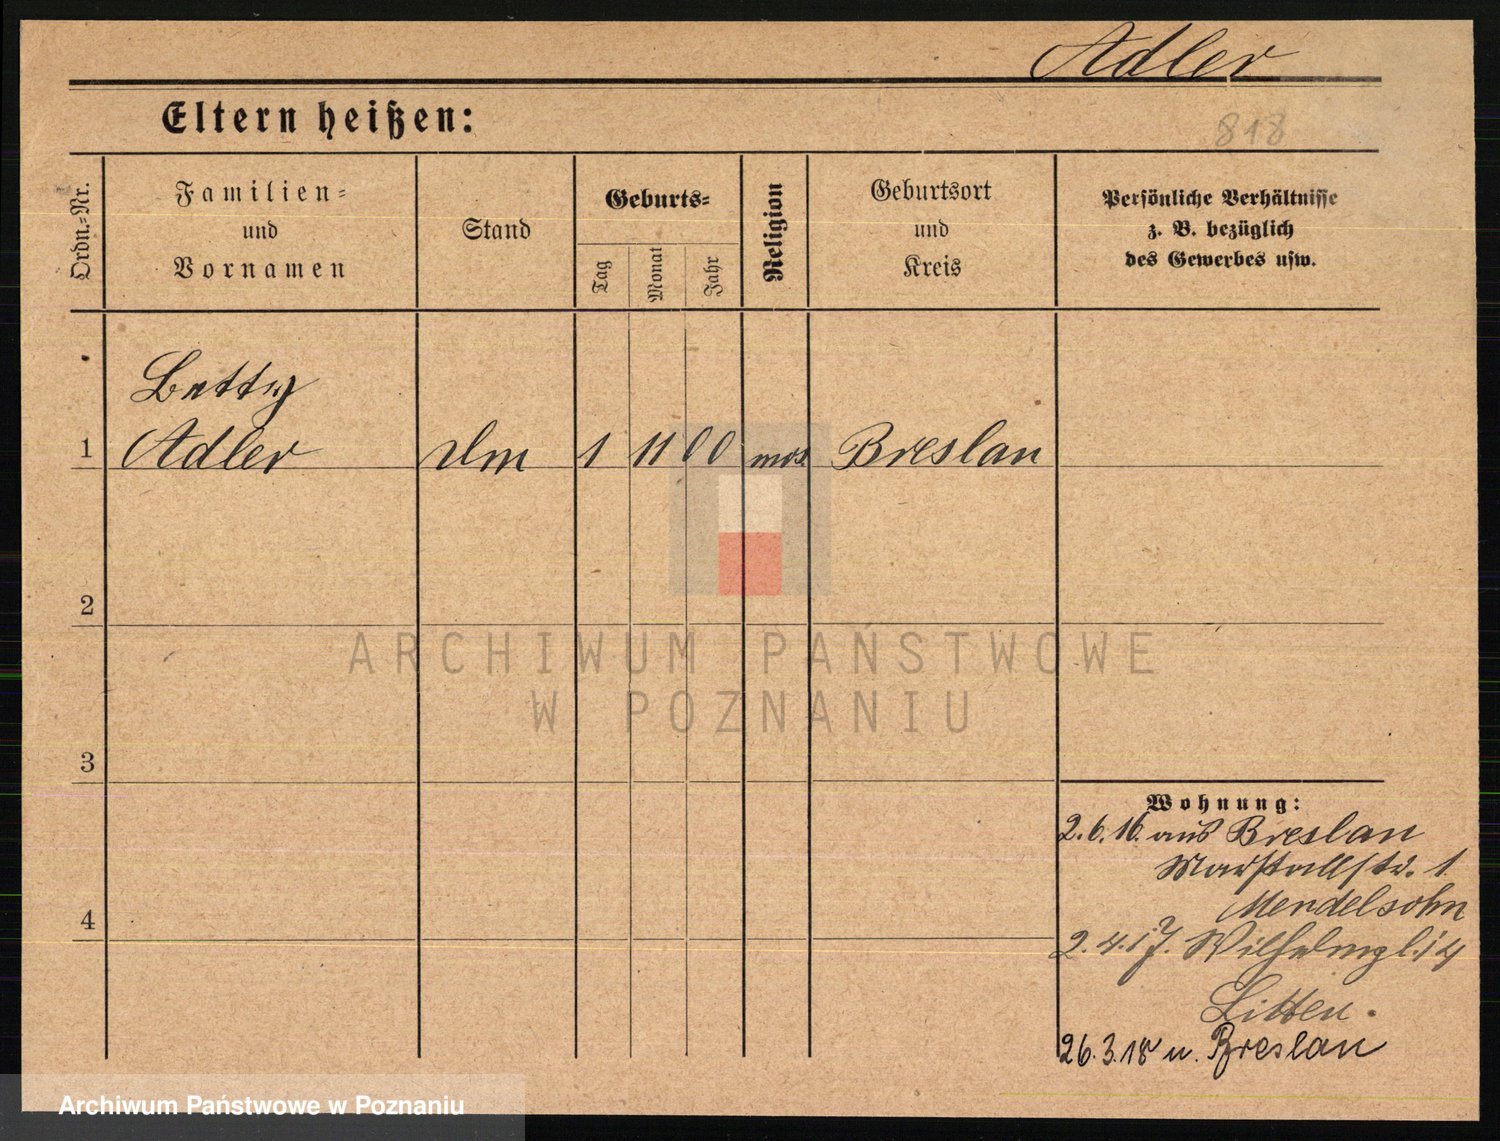 Adler
Eltern heißen:
818
Ordn.-Nr.
Familien-
und
Vornamen
Stand
Geburts-
Tag
Monat
Jahr
Religion
Geburtsort
und
Kreis
Persönliche Verhältnisse
z. B. bezüglich
des Gewerbes usw.
Betty
1 Adler 1 11 00 mos. Breslau
2
ARCHIWUM PAŃSTWOWE
W POZNANIU
3
4
Wohnung:
2.6.16. aus Breslau
Marstallstr. 1
Mendelsohn
2.4.17. Wilhelmpl. 14
Litten.
26.3.18 n. Breslau
Archiwum Państwowe w Poznaniu